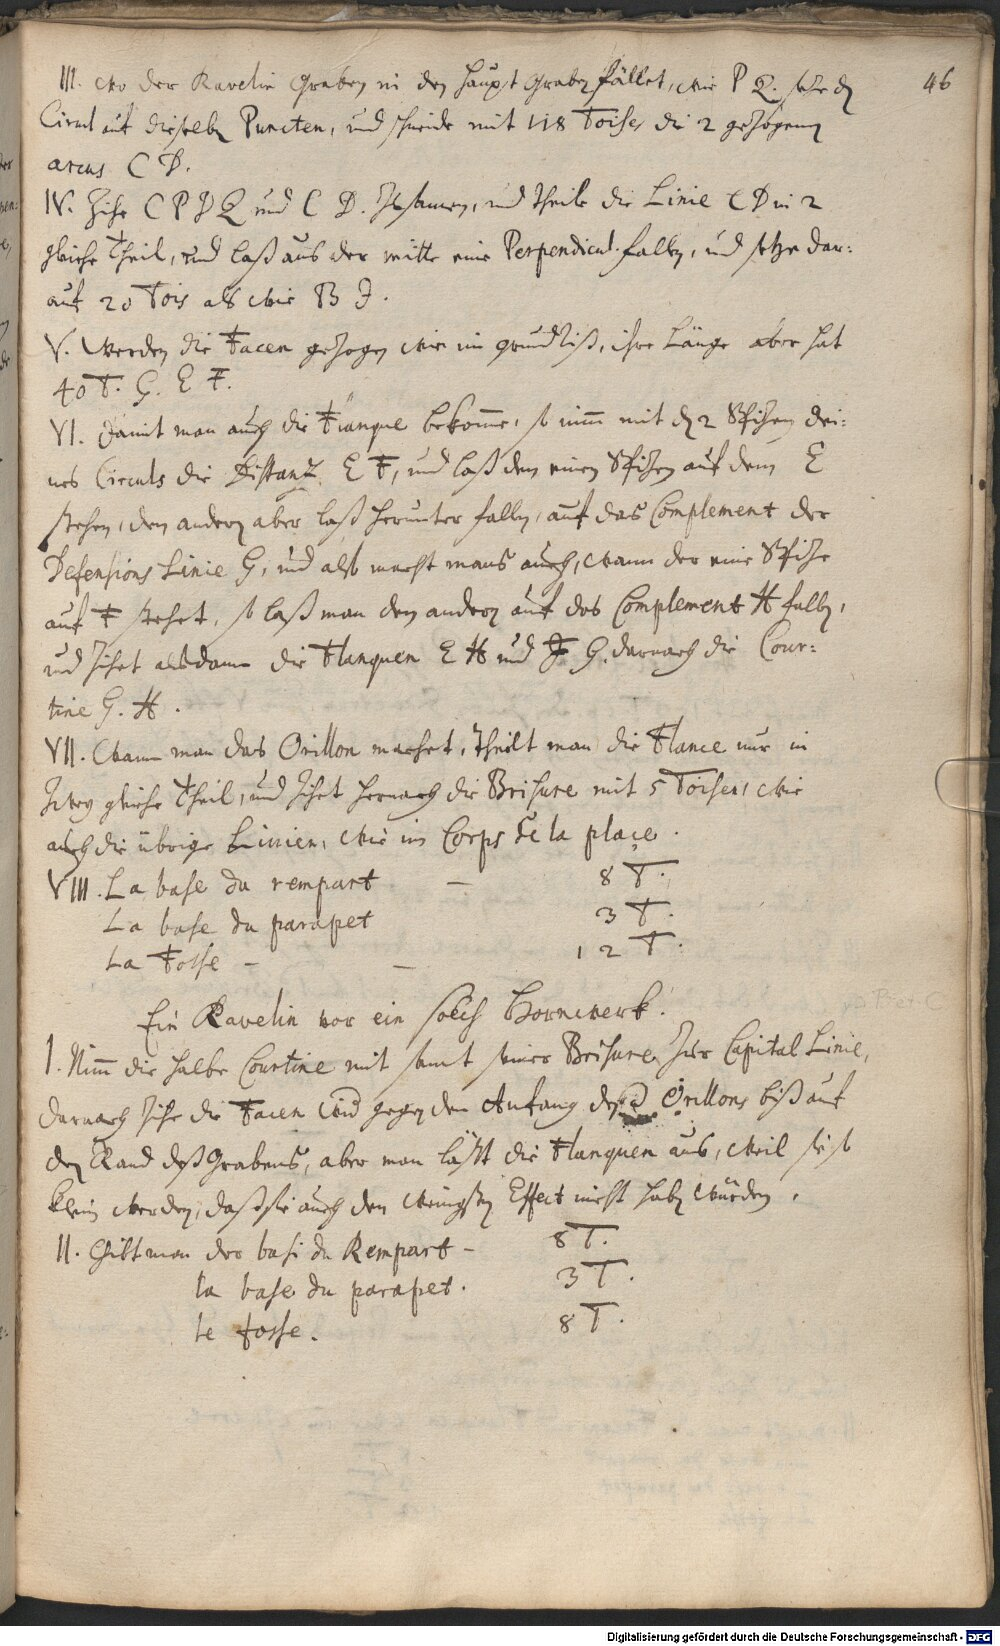 46
III. wo der Ravelin graben in den haupt graben fället, wie P Q. setze dẽ
Circul auf dieselbe Puncten, und schneide mit 118 Toises die 2 gezogene
arcus C D.
IV. Zihe C P D Q und C D. zusamen, und theile die Linie C D in 2
gleiche Theil, und laß aus der mitte eine Perpendicul. fallen, und setze dar:
auf 20 Tois als wie B J.
V. Werden die Facen gezogen wie im grundriß, ihre Länge aber hat
40 T. G. E F.
VI. Damit man auch die Flanque bekome, so nim mit dẽ 2 Spizen dei:
nes Circuls die Distanz E F, und laß den einen Spizen auf dem E
stehen, den andern aber laß herunter fallen, auf das Complement der
Defensions Linie G, und also macht mans auch, wann der eine Spize
auf F stehet, so laß man den andern auf das Complement H fallen,
und zihet alsdann die Flanquen E H und F G. darnach die Cour:
tine G. H.
VII. Wann man das Orillon machet, theilt man die Flance nur in
zwey gleiche Theil, und zihet hernach die Brisure mit 5 Toises, wie
auch die übrige Linien, wie im Corps de la place.
VIII. La base du rempart — 8 T.
La base du parapet 3 T.
La Fosse — — 12 T.
Ein Ravelin vor ein solch Hornwerk.
I. Nim die halbe Courtine mit samt seiner Brisure zur Capital Linie,
darnach zihe die Facen gegen den Anfang deß Orillons biß auf
den Rand deß Grabens, aber man läßt die Flanquen aus, weil sie so
klein werden, daß sie auch den wenigsten Effect nicht haben würden.
II. Gibt man der basi du Rempart — 8 T.
la base du parapet. 3 T.
le fosse. 8 T.
Digitalisierung gefördert durch die Deutsche Forschungsgemeinschaft - DFG